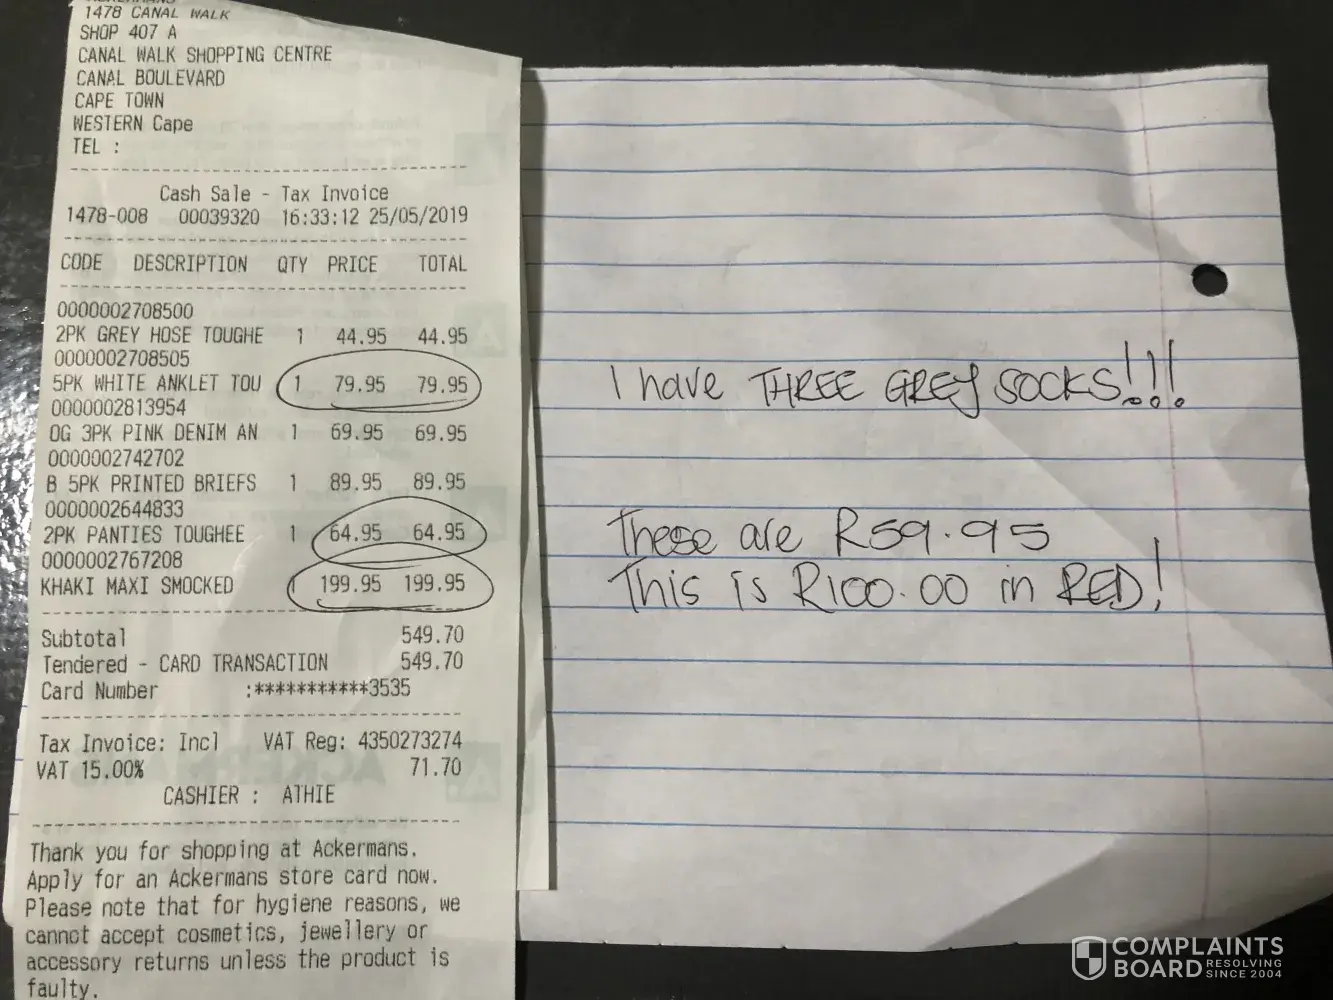 1478 CANAL WALK
SHOP 407 A
CANAL WALK SHOPPING CENTRE
CANAL BOULEVARD
CAPE TOWN
WESTERN Cape
TEL :
Cash Sale - Tax Invoice
1478-008 00039320 16:33:12 25/05/2019
CODE DESCRIPTION QTY PRICE TOTAL
0000002708500
2PK GREY HOSE TOUGHE 1 44.95 44.95
0000002708505
5PK WHITE ANKLET TOU 1 79.95 79.95
0000002813954
OG 3PK PINK DENIM AN 1 69.95 69.95
0000002742702
B 5PK PRINTED BRIEFS 1 89.95 89.95
0000002644833
2PK PANTIES TOUGHEE 1 64.95 64.95
0000002767208
KHAKI MAXI SMOCKED 1 199.95 199.95
Subtotal 549.70
Tendered - CARD TRANSACTION 549.70
Card Number :***********3535
Tax Invoice: Incl VAT Reg: 4350273274
VAT 15.00% 71.70
CASHIER : ATHIE
Thank you for shopping at Ackermans.
Apply for an Ackermans store card now.
Please note that for hygiene reasons, we
cannot accept cosmetics, jewellery or
accessory returns unless the product is
faulty.
I have THREE GREY SOCKS!!!
These are R59.95
This is R100.00 in RED!
COMPLAINTS
BOARD RESOLVING
SINCE 2004